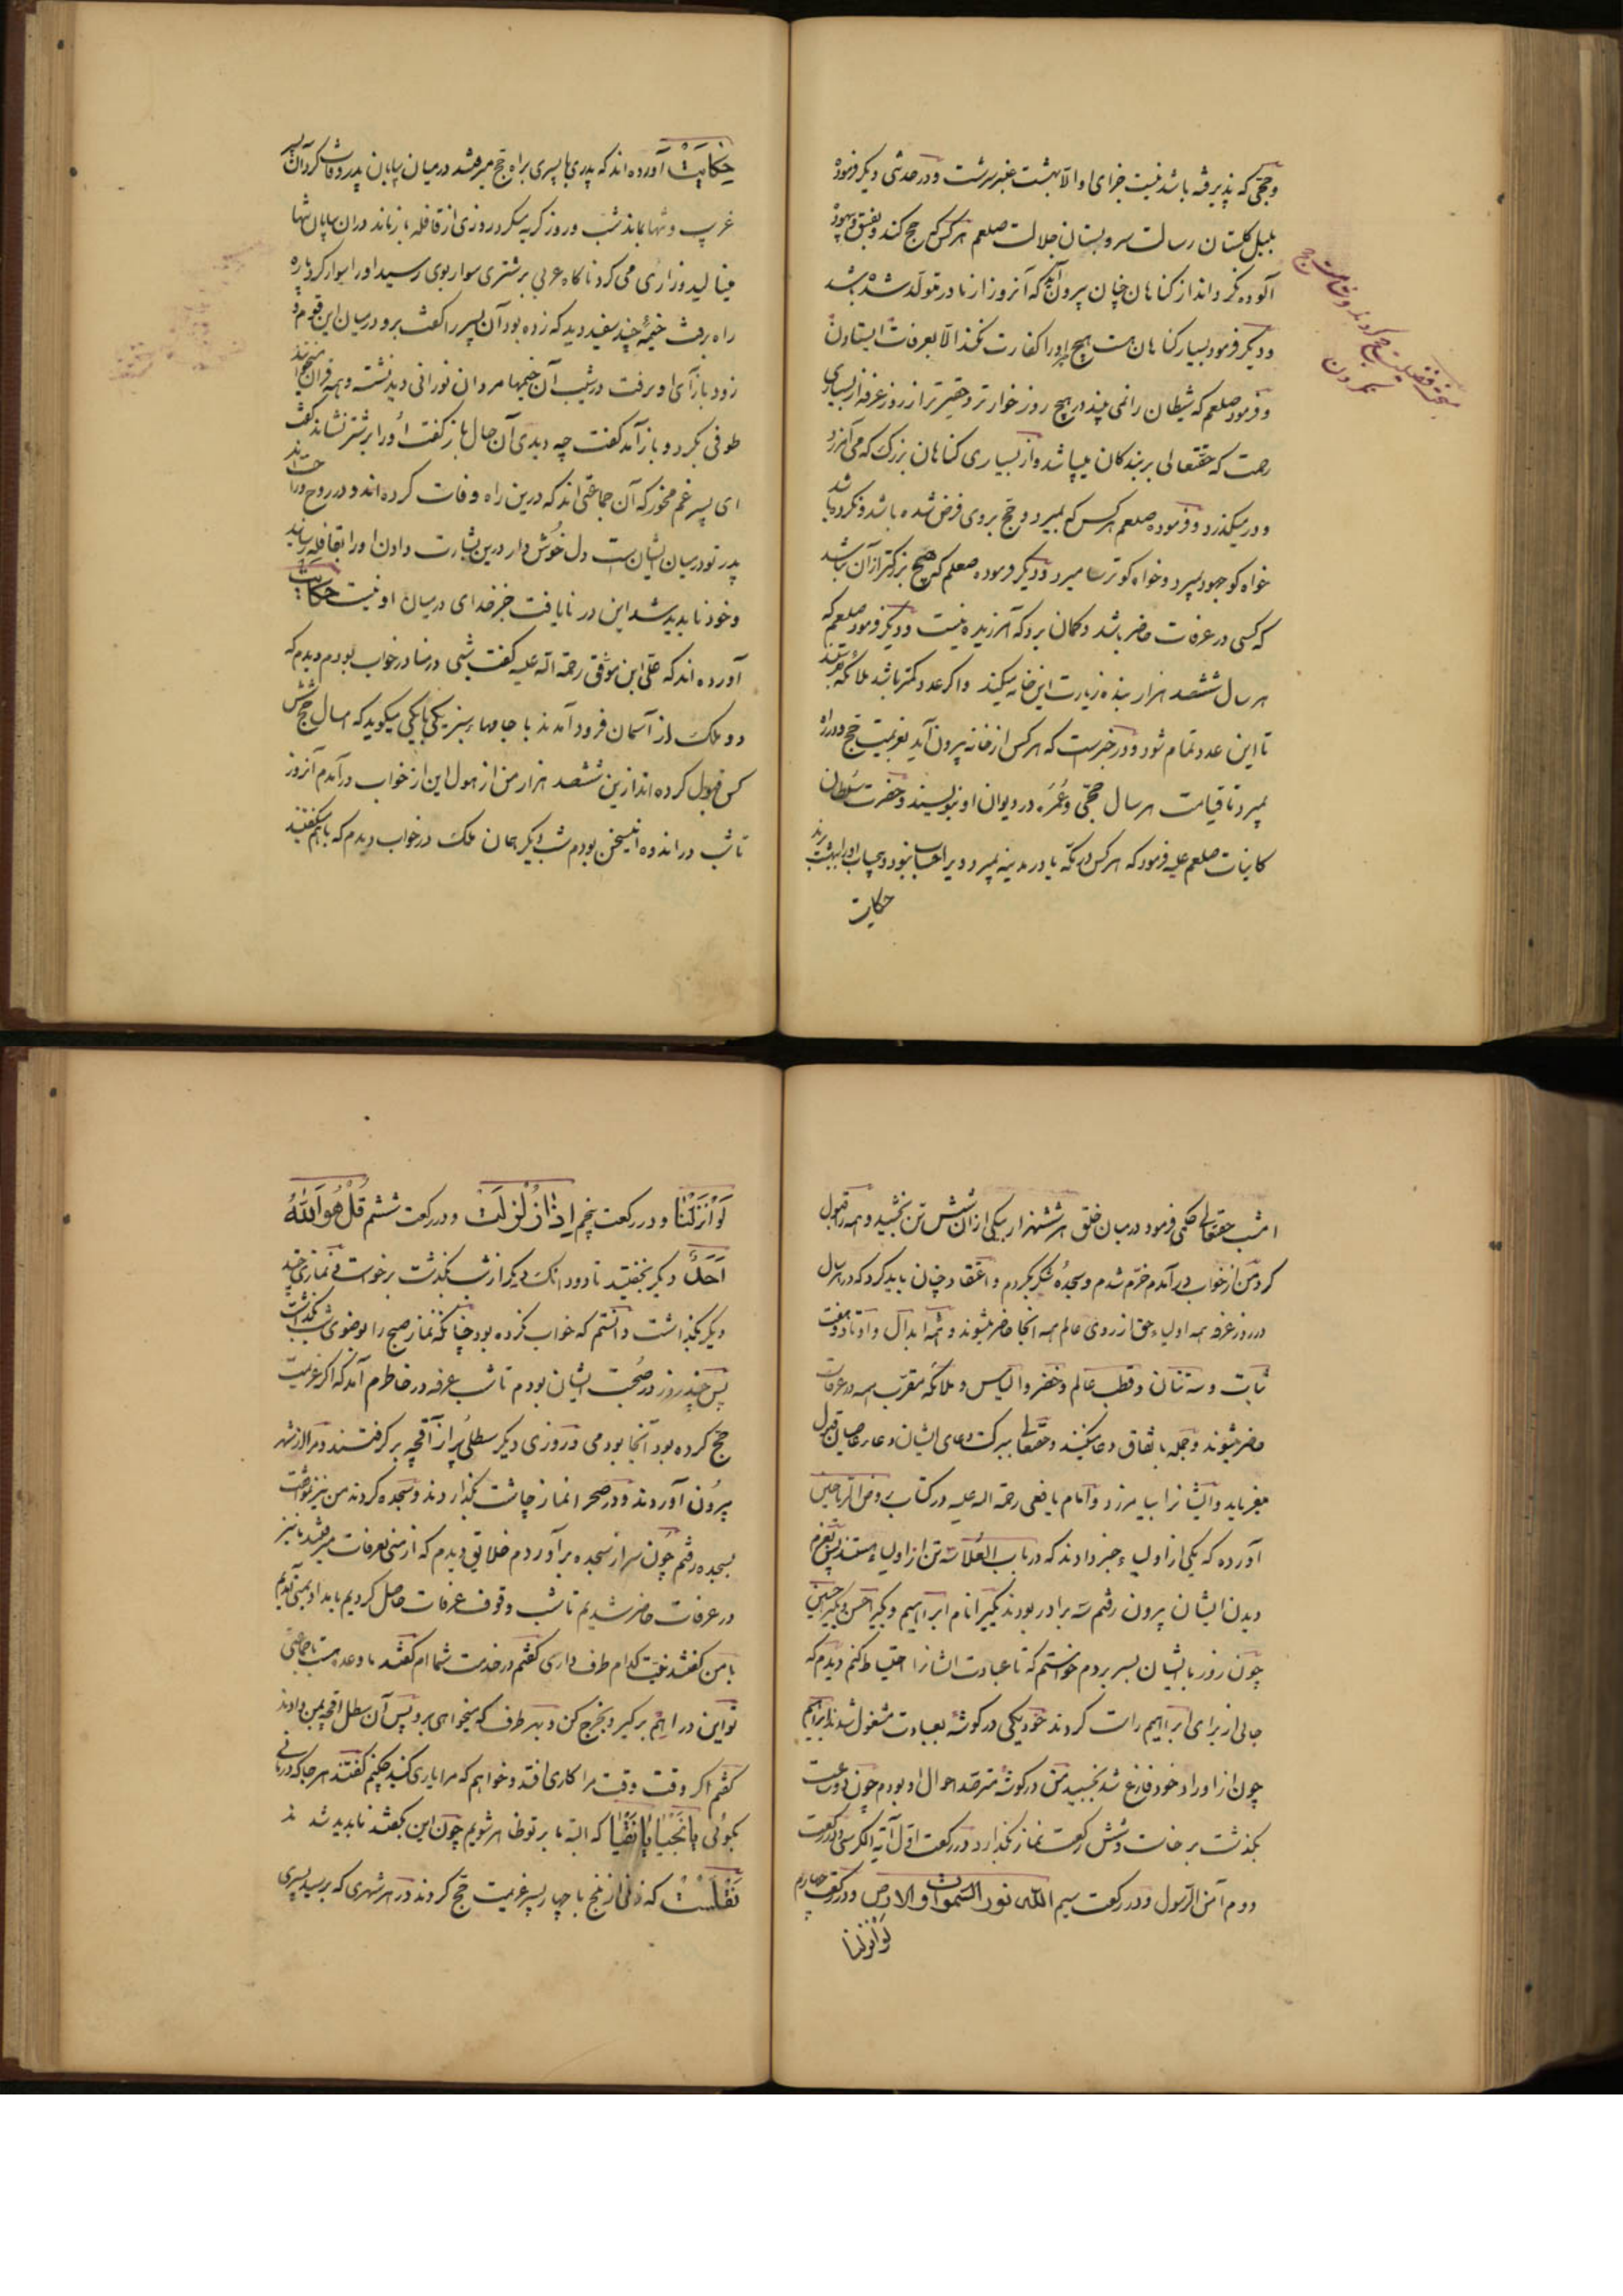 وحجی که پذیرفته باشد نیست جزای او الا بهشت عنبر سرشت ودر حدیثی دیکر فرمود
بلبل کلستان رسالت سرو بستان جلالت صلعم هر کس که حج کند و بفسق و بیهوده
آلوده نکرداند از کناهان چنان بیرون آید که آنروز از مادر متولد شده باشد
ودیکر فرمود بسیار کناهان هست هیچ چیز اورا کفارت نکند الا بعرفات ایستادن
وفرمود صلعم که شیطان را نمی بینند در هیچ روز خوارتر وحقیرتر از روز عرفه از بسیاری
رحمت که حقتعالی بر بندکان میپاشد واز بسیاری کناهان بزرک که می آمرزد
ودر میکذرد وفرموده صلعم هر کس که بمیرد وحج بروی فرض شده باشد ونکرده باشد
خواه کو جهود بمیرد وخواه کو ترسا میرد ودیکر فرموده صلعم که هیچ بزرکتر از آن نباشد
که کسی در عرفات حاضر باشد وکمان برد که آمرزیده نیست ودیکر فرمود صلعم که
هر سال ششصد هزار بنده زیارت این خانه میکنند واکر عدد کمتر باشد ملائکه
تا این عدد تمام شود ودر خبرست که هر کس از خانه بیرون آید بعزیمت حج ودر راه
بمیرد تا قیامت هر سال حجی وعمره در دیوان او بنویسند وحضرت سلطان
کاینات صلعم علیه فرمود که هر کس در مکه یا در مدینه بمیرد ویرا حساب نبود وبیحساب اورا ببهشت برند
حکایت
حکایت آورده اند که پدری با پسری براه حج میرفتند در میان بیابان پدر وفات کرد آن پسر
غریب وتنها بماند شب وروز کریه میکرد روزی از قافله باز ماند در ان بیابان تنها
مینالید وزاری می کرد ناکاه عربی بر شتری سوار بوی رسید اورا سوار کرد پاره
راه برفت خیمهٔ چند سفید دید که زده بود آن پسر را کفت برو در میان این قوم و
زود باز آی او برفت در شیب آن خیمها مردان نورانی دید نشسته وهمه قرآن میخوانند
طوفی بکرد وباز آمد کفت چه دیدی آن حال باز کفت اورا بر شتر نشاند کفت
ای پسر غم مخور که آن جماعتی اند که درین راه وفات کرده اند ودر روح وراحت اند
پدر تو در میان ایشان ست دل خوش دار درین بشارت دادن اورا بقافله رسانید
وخود نا بدید شد این در نایافت جز خدای در میان او نیست حکایت
آورده اند که علی ابن موفق رحمة الله علیه کفت شبی در منا در خواب بودم دیدم که
دو ملک از آسمان فرود آمدند با جامهاء سبز یکی با یکی میکوید که امسال حج شش
کس قبول کرده اند ازین ششصد هزار من از هول این از خواب درآمدم آنروز
تا شب در اندوه این سخن بودم شب دیکر همان ملک در خواب دیدم که باهم میکفتند
امشب حقتعالی حکمی فرمود در میان خلق هر ششهزار بیکی از ان شش تن بخشید وهمه را قبول
کرد من از خواب در آمدم خرم شدم وسجدهٔ شکر بکردم واعتقاد چنان باید کرد که در هر سال
در روز عرفه همه اولیاء حق از روی عالم همه آنجا حاضر میشوند وهمه ابدال واوتاد وهفت
تنان وسه تنان وقطب عالم وخضر والیاس وملائکه مقرب همه در عرفات
حاضر میشوند وجمله باتفاق دعا میکنند وحقتعالی ببرکت دعای ایشان دعاء عاصیان قبول
میفرماید وایشانرا بیامرزد وامام یافعی رحمة الله علیه در کتاب روض الریاحین
آورده که یکی از اولیاء خبر دادند که در باب العلا سه تن از اولیاء هستند پس بعزم
دیدن ایشان بیرون رفتم سه برادر بودند یکیرا نام ابراهیم ویکیرا حسن ویکیرا حسین
چون روز با ایشان بسر بردم خواستم که تا عبادت ایشانرا احتیاط کنم دیدم که
جائی از برای ابراهیم راست کردند خود یکی در کوشهٔ بعبادت مشغول شدند ابراهیم
چون از اوراد خود فارغ شد بخسبید من در کوشه مترصد احوال او بودم چون دو ساعت
بکذشت برخاست وشش رکعت نماز بکذارد در رکعت اول آیة الکرسی ودر رکعت
دوم آمن الرسول ودر رکعت سیم الله نور السموات والارض ودر رکعت چهارم
لو انزلنا
لو انزلنا ودر رکعت پنجم اذا زلزلت ودر رکعت ششم قل هو الله
احد دیکر بخفتید تا دو دانک دیکر از شب بکذشت برخواست ونمازی چند
دیکر بکذاشت دانستم که خواب نکرده بود چنانکه نماز صبح را بوضوی شب بکذاشت
پس چند روز در صحبت ایشان بودم تا شب عرفه در خاطرم آمد که اکر عزیمت
حج کرده بود آنجا بودمی در روزی دیکر سطلی پر از آقچه بر کرفتند ومرا از شهر
بیرون آوردند ودر صحرا نماز چاشت بکذاردند وسجده کردند من نیز
بسجده رفتم چون سر از سجده بر آوردم خلایق دیدم که از منی بعرفات میرفتند ما نیز
در عرفات حاضر شدیم تا شب وقوف عرفات حاصل کردیم بامداد بمنی آمدیم
با من کفتند نیت کدام طرف داری کفتم در خدمت شما ام کفتند ما وعده هست با جماعتی
تو این دراهم برکیر وبخرج کن وبهر طرف که میخواهی برو پس آن سطل اقچه بمن دادند
کفتم اکر وقت وقت مرا کاری افتد وخواهم که مرا یاری کنید چکنم کفتند هر جا که درمانی
بکوئی یا نجبا یا نقبا که البته ما بر تو ظاهر شویم چون این بکفتند نا بدید شدند
نقلست که زنی از بلخ با چهار پسر عزیمت حج کردند در هر شهری که برسید پسری